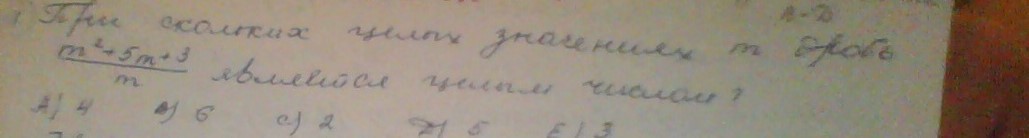 При скольких целых значениях m дробь
\frac{m^2+5m+3}{m} является целым числом?
A) 4 B) 6 C) 2 D) 5 E) 3